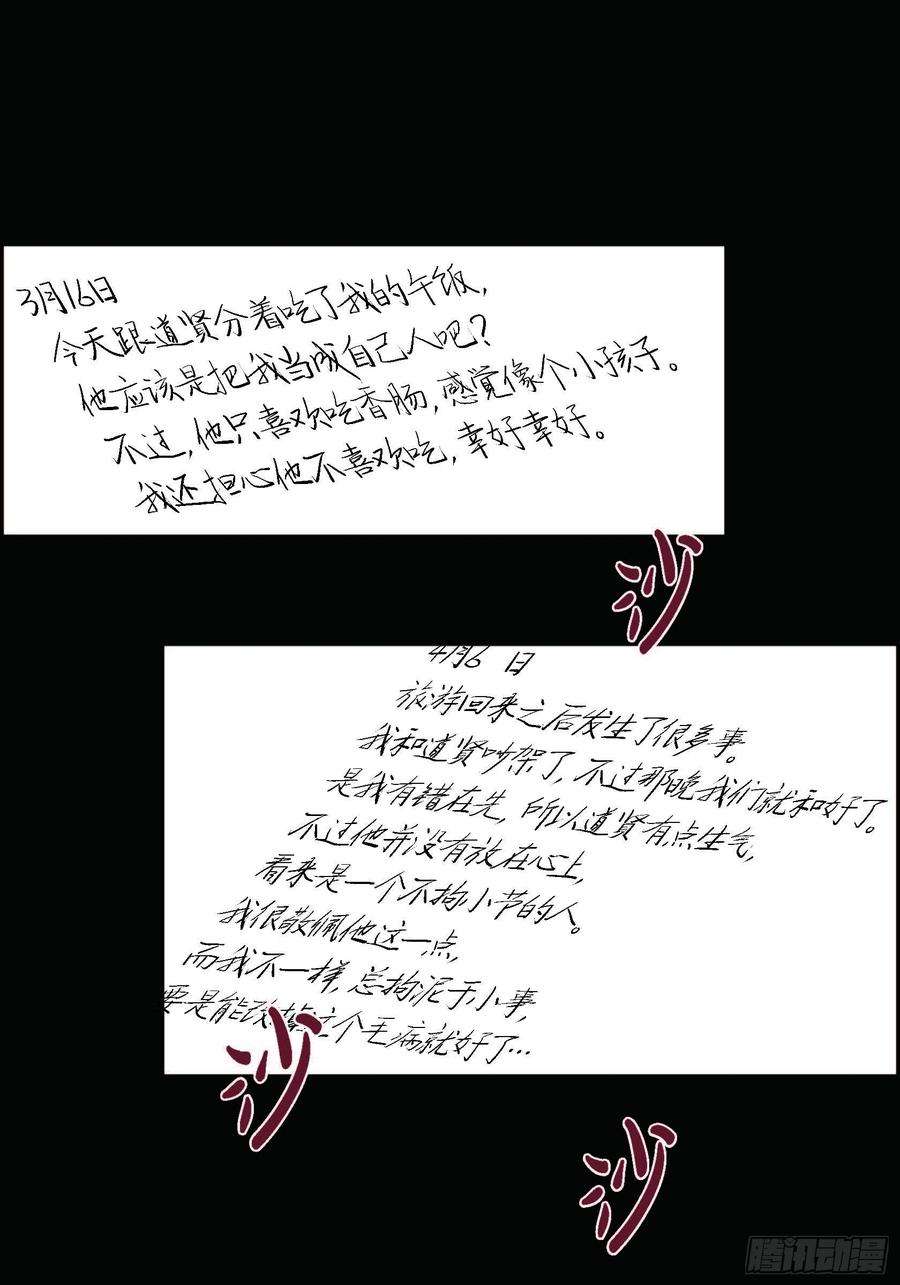 3月16日
今天跟道贤分着吃了我的午饭,
他应该是把我当成自己人吧?
不过,他只喜欢吃香肠,感觉像个小孩子。
我还担心他不喜欢吃,幸好幸好。
沙
4月6 日
旅游回来之后发生了很多事。
我和道贤吵架了,不过那晚我们就和好了。
是我有错在先,所以道贤有点生气,
不过他并没有放在心上,
看来是一个不拘小节的人。
我很敬佩他这一点,
而我不一样,总拘泥于小事,
要是能改掉这个毛病就好了...
沙
沙
腾讯动漫